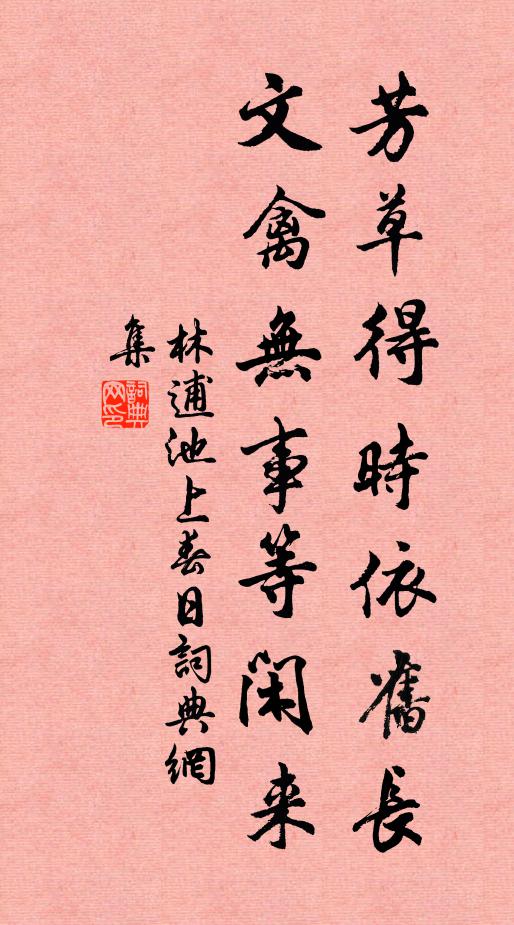 芳草得時依舊長
文禽無事等閑来
林逋池上春日詞典網
集
詞典網印